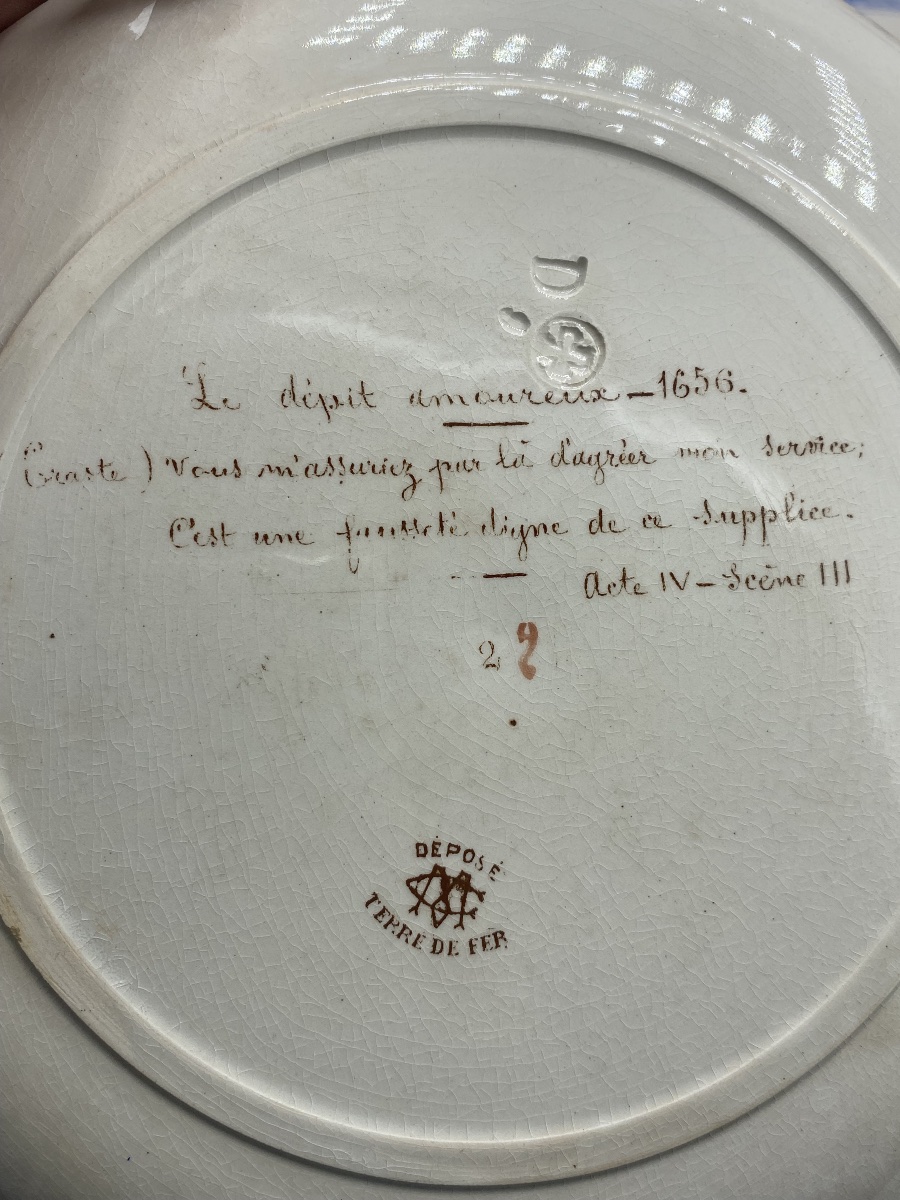 D
Le dépit amoureux — 1656.
Eraste) Vous m'assuriez par là d'agréer mon service;
C'est une fausseté digne de ce supplice.
Acte IV — Scène III
2 2
DÉPOSÉ
TERRE DE FER